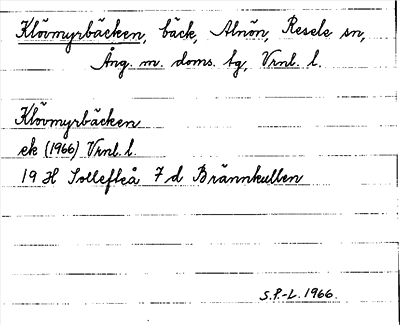 Klövmyrbäcken, bäck, Alnön, Resele sn,
Ång. m. doms. tg, Vrnl. l.
Klövmyrbäcken
ek (1966) Vrnl. l.
19 H Sollefteå 7 d Brännkullen
S.P.-L. 1966.